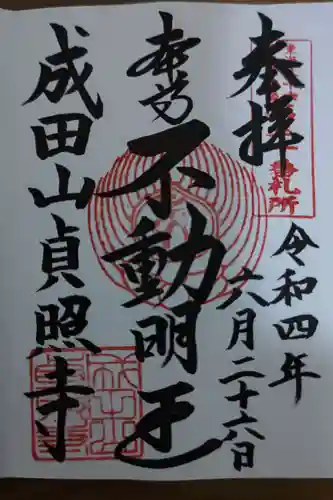 奉拝
令和四年
六月二十六日
本尊
不動明王
成田山貞照寺
札所